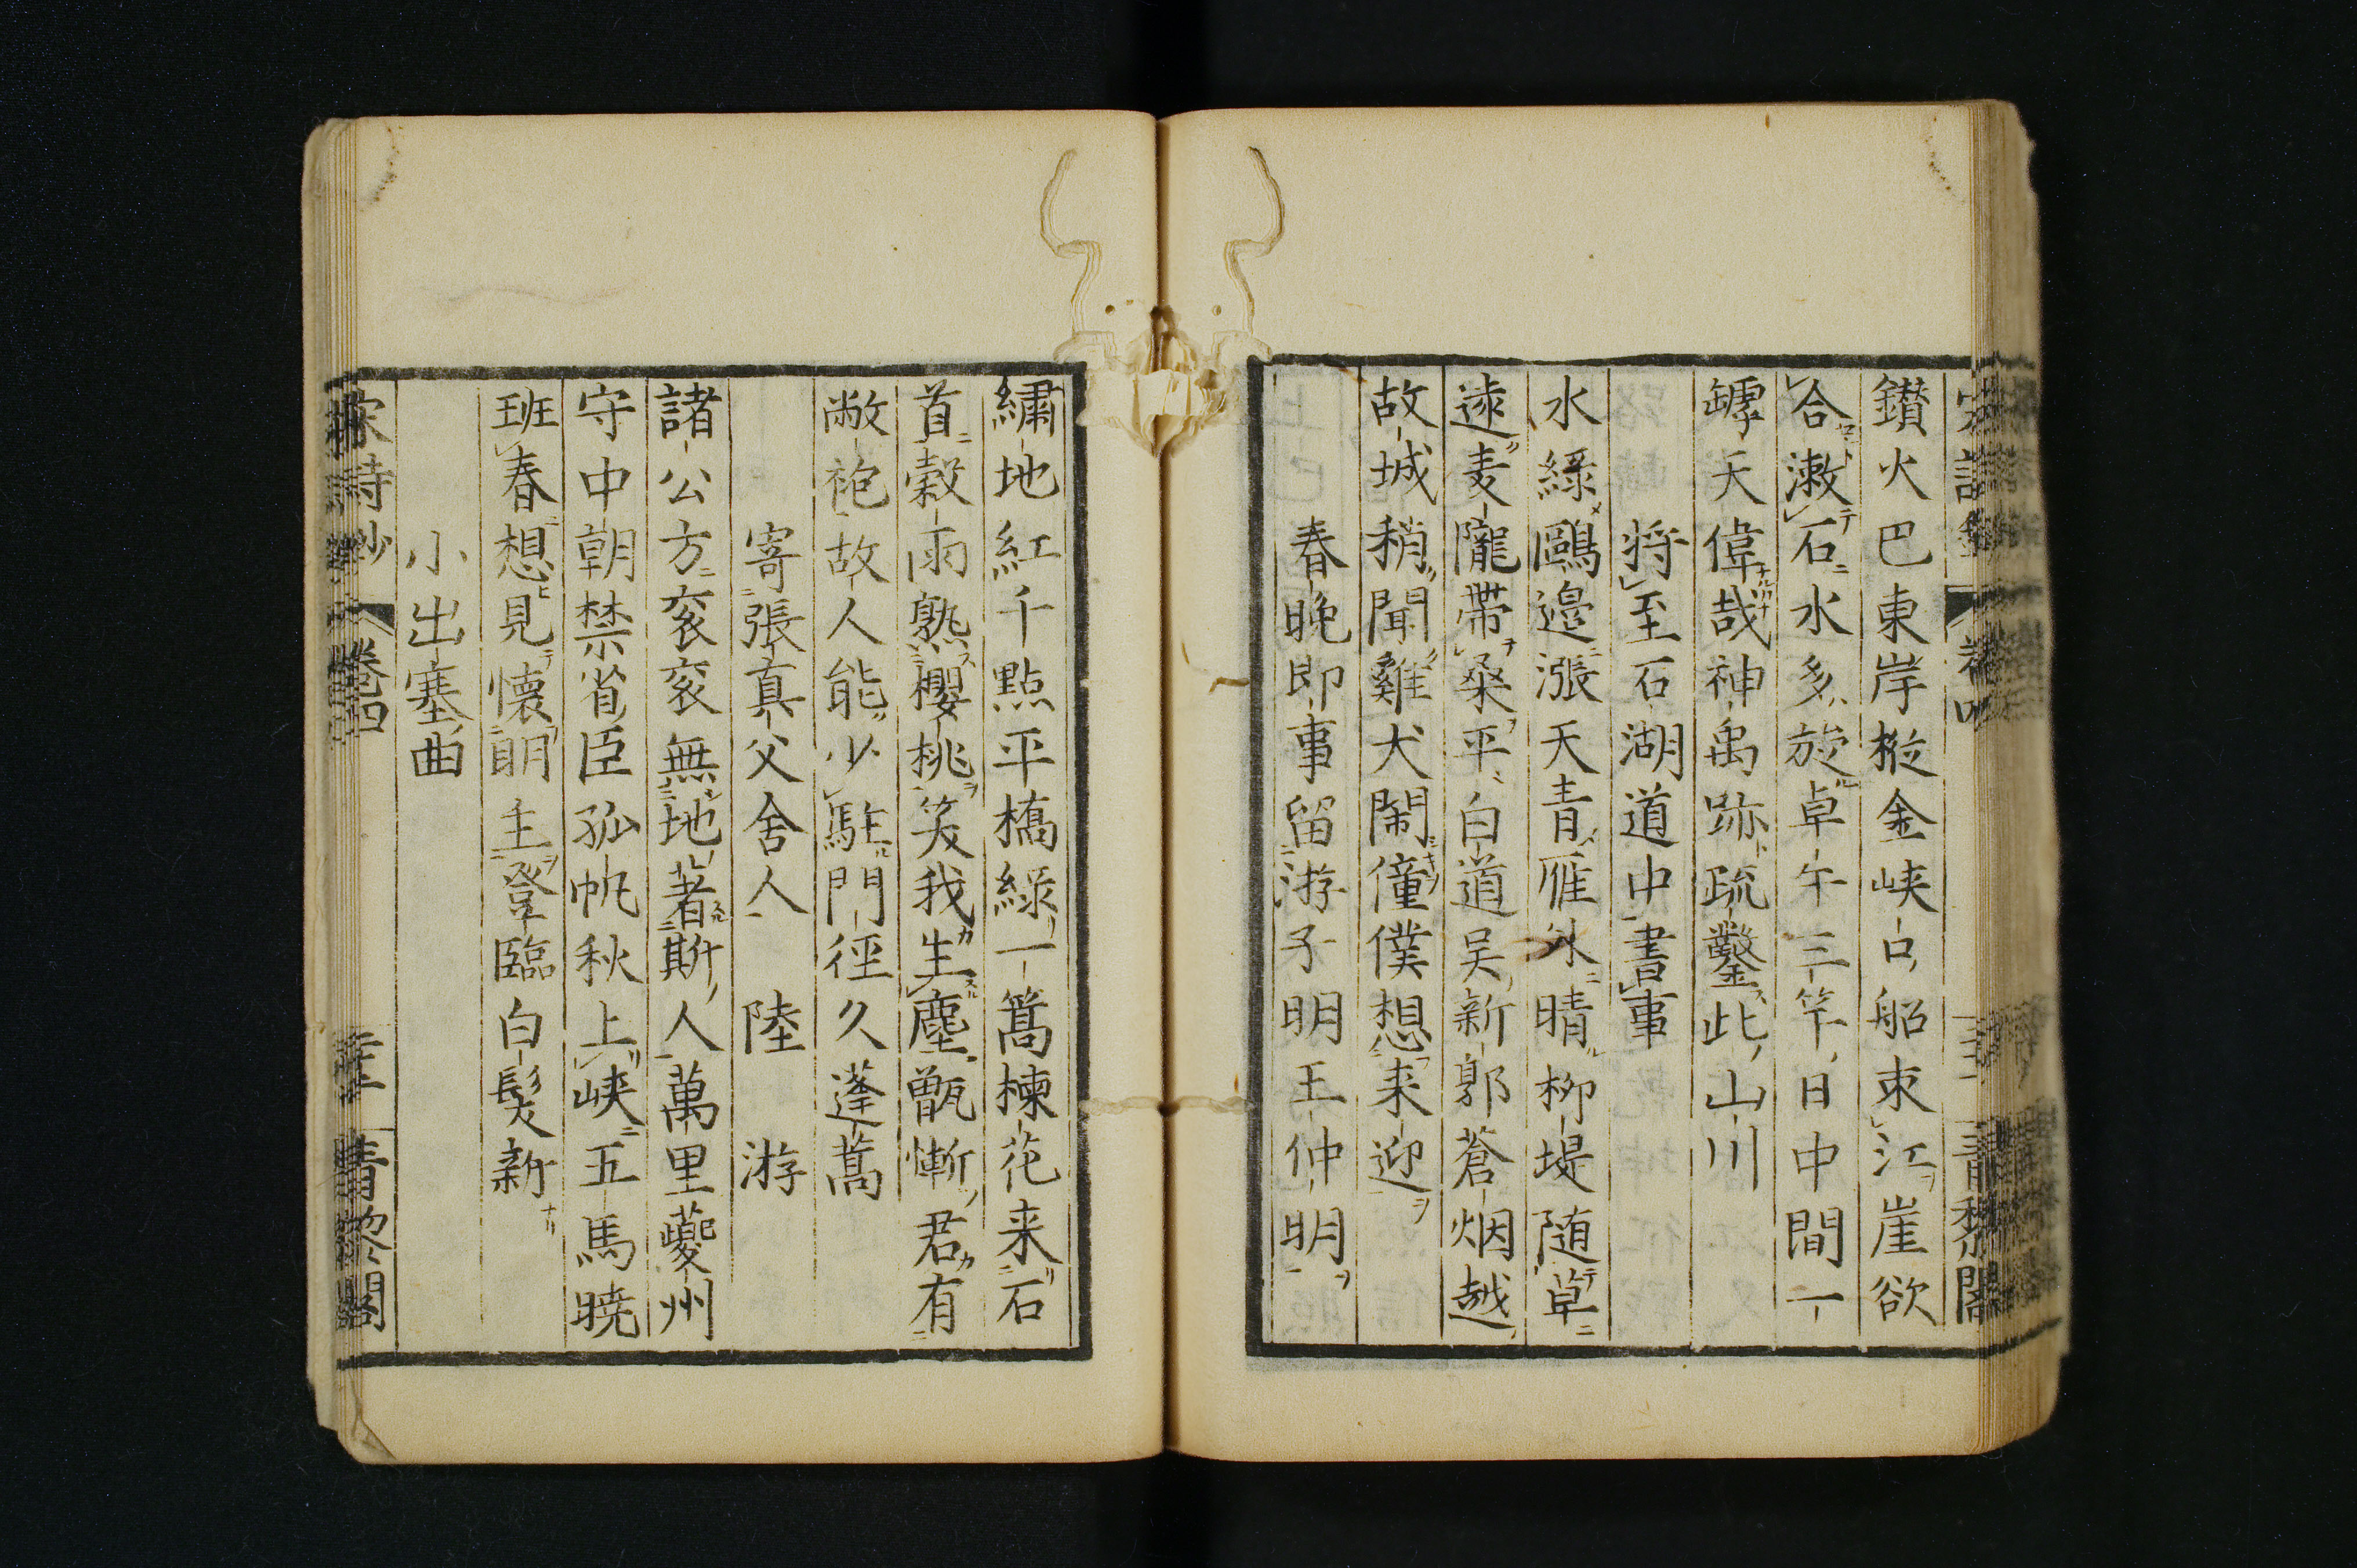 鑚火巴東岸摐金峡口船束江崖欲
合漱石水多旋卓午三竿日中間一
罅天偉哉神禹跡疏鑿此山川
将至石湖道中書事
水緑鷗邉漲天青雁外晴柳堤随草
遠麦隴帶桑平白道呉新郭蒼烟越
故城稍聞雞犬閙僮僕想来迎
春晩即事留游子明王仲明
繡地紅千點平橋緑一篙楝花来石
首穀雨熟櫻桃笑我生塵甑慚君有
敝袍故人能少駐門徑久蓬蒿
寄張真父舎人 陸 游
諸公方衮衮無地著斯人萬里夔州
守中朝禁省臣孤帆秋上峡五馬暁
班春想見懐明主登臨白髪新
小出塞曲
宋詩鈔 卷四 青黎閣